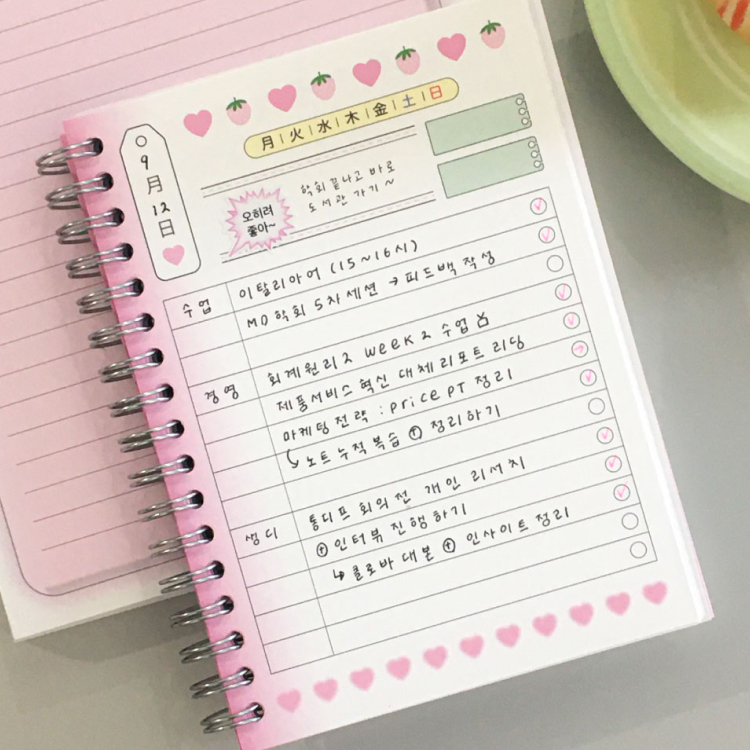 月 | 火 | 水 | 木 | 金 | 土 | 日
9
月
12
日
오히려
좋아~
학회 끝나고 바로
도서관 가기~
수업
이탈리아어 (15~16시)
MD학회 5차세션 → 피드백 작성
경영
회계원리2 week2 수업
제품서비스 혁신 대체리포트 리딩
마케팅전략 : price PT 정리
노트 누적 복습 + 정리하기
생디
통디프 회의 전 개인 리서치
+ 인터뷰 진행하기
↳ 클로바 대본 + 인사이트 정리